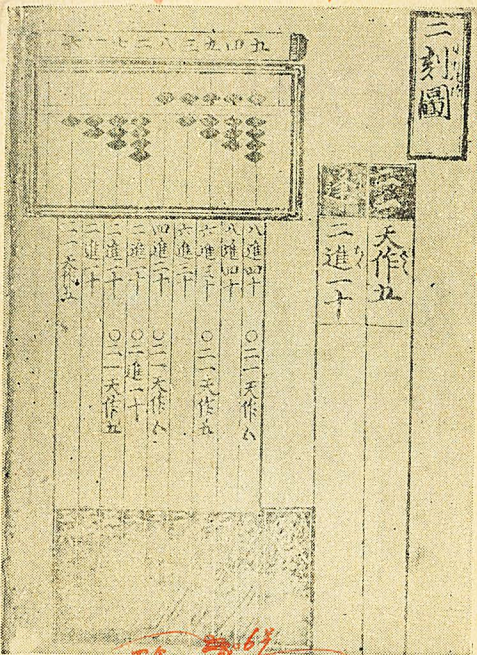 二刻圖
天作五
二進一十
六一七二八三九四五
八進四十 〇二一天作五
八進四十
六進三十 〇二一天作五
六進三十
四進二十 〇二一天作五
二進一十 〇二進一十
二進一十 〇二一天作五
二進一十
二一天作五